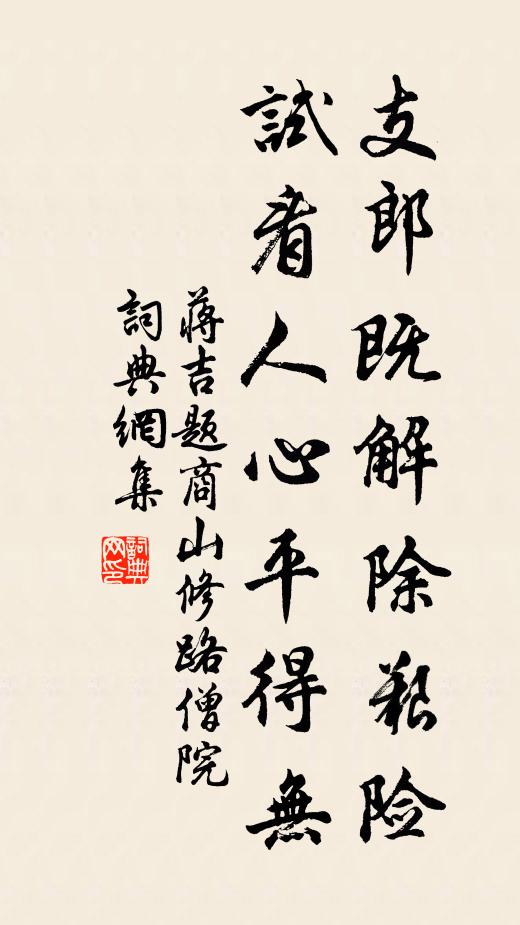 支郎既解除艱险
試看人心平得無
蔣吉题商山修路僧院
詞典網集
詞典网印